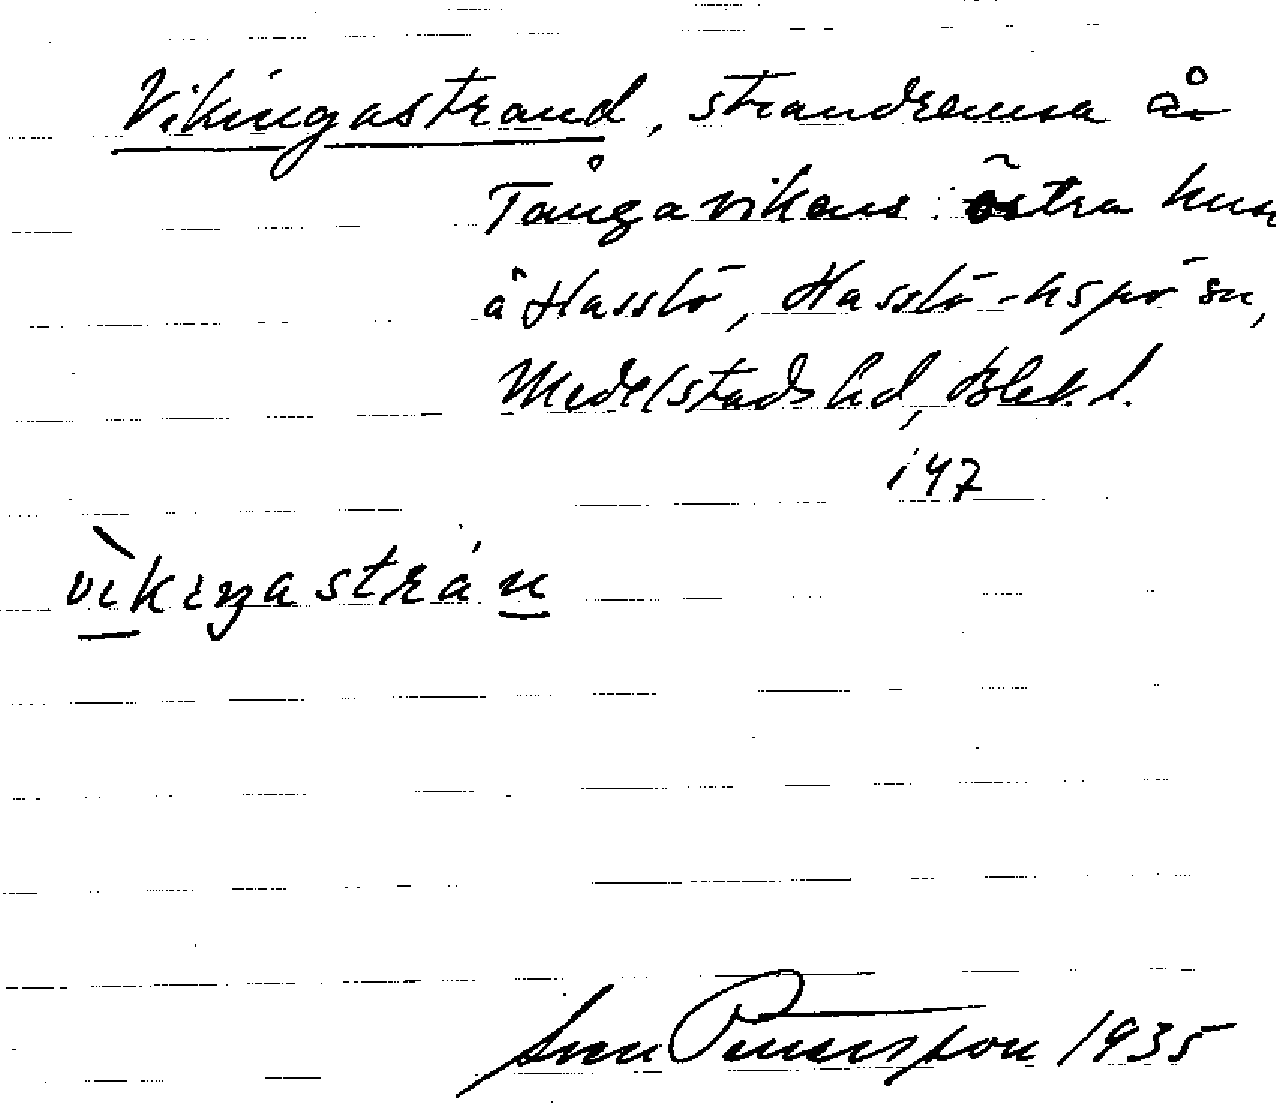 Vikingastrand, strandremsa å
Tångavikens östra
å Hasslö, Hasslö
Medelstads hd, Blek. l.
147
vìkiŋastrán
Sven Pettersson 1935